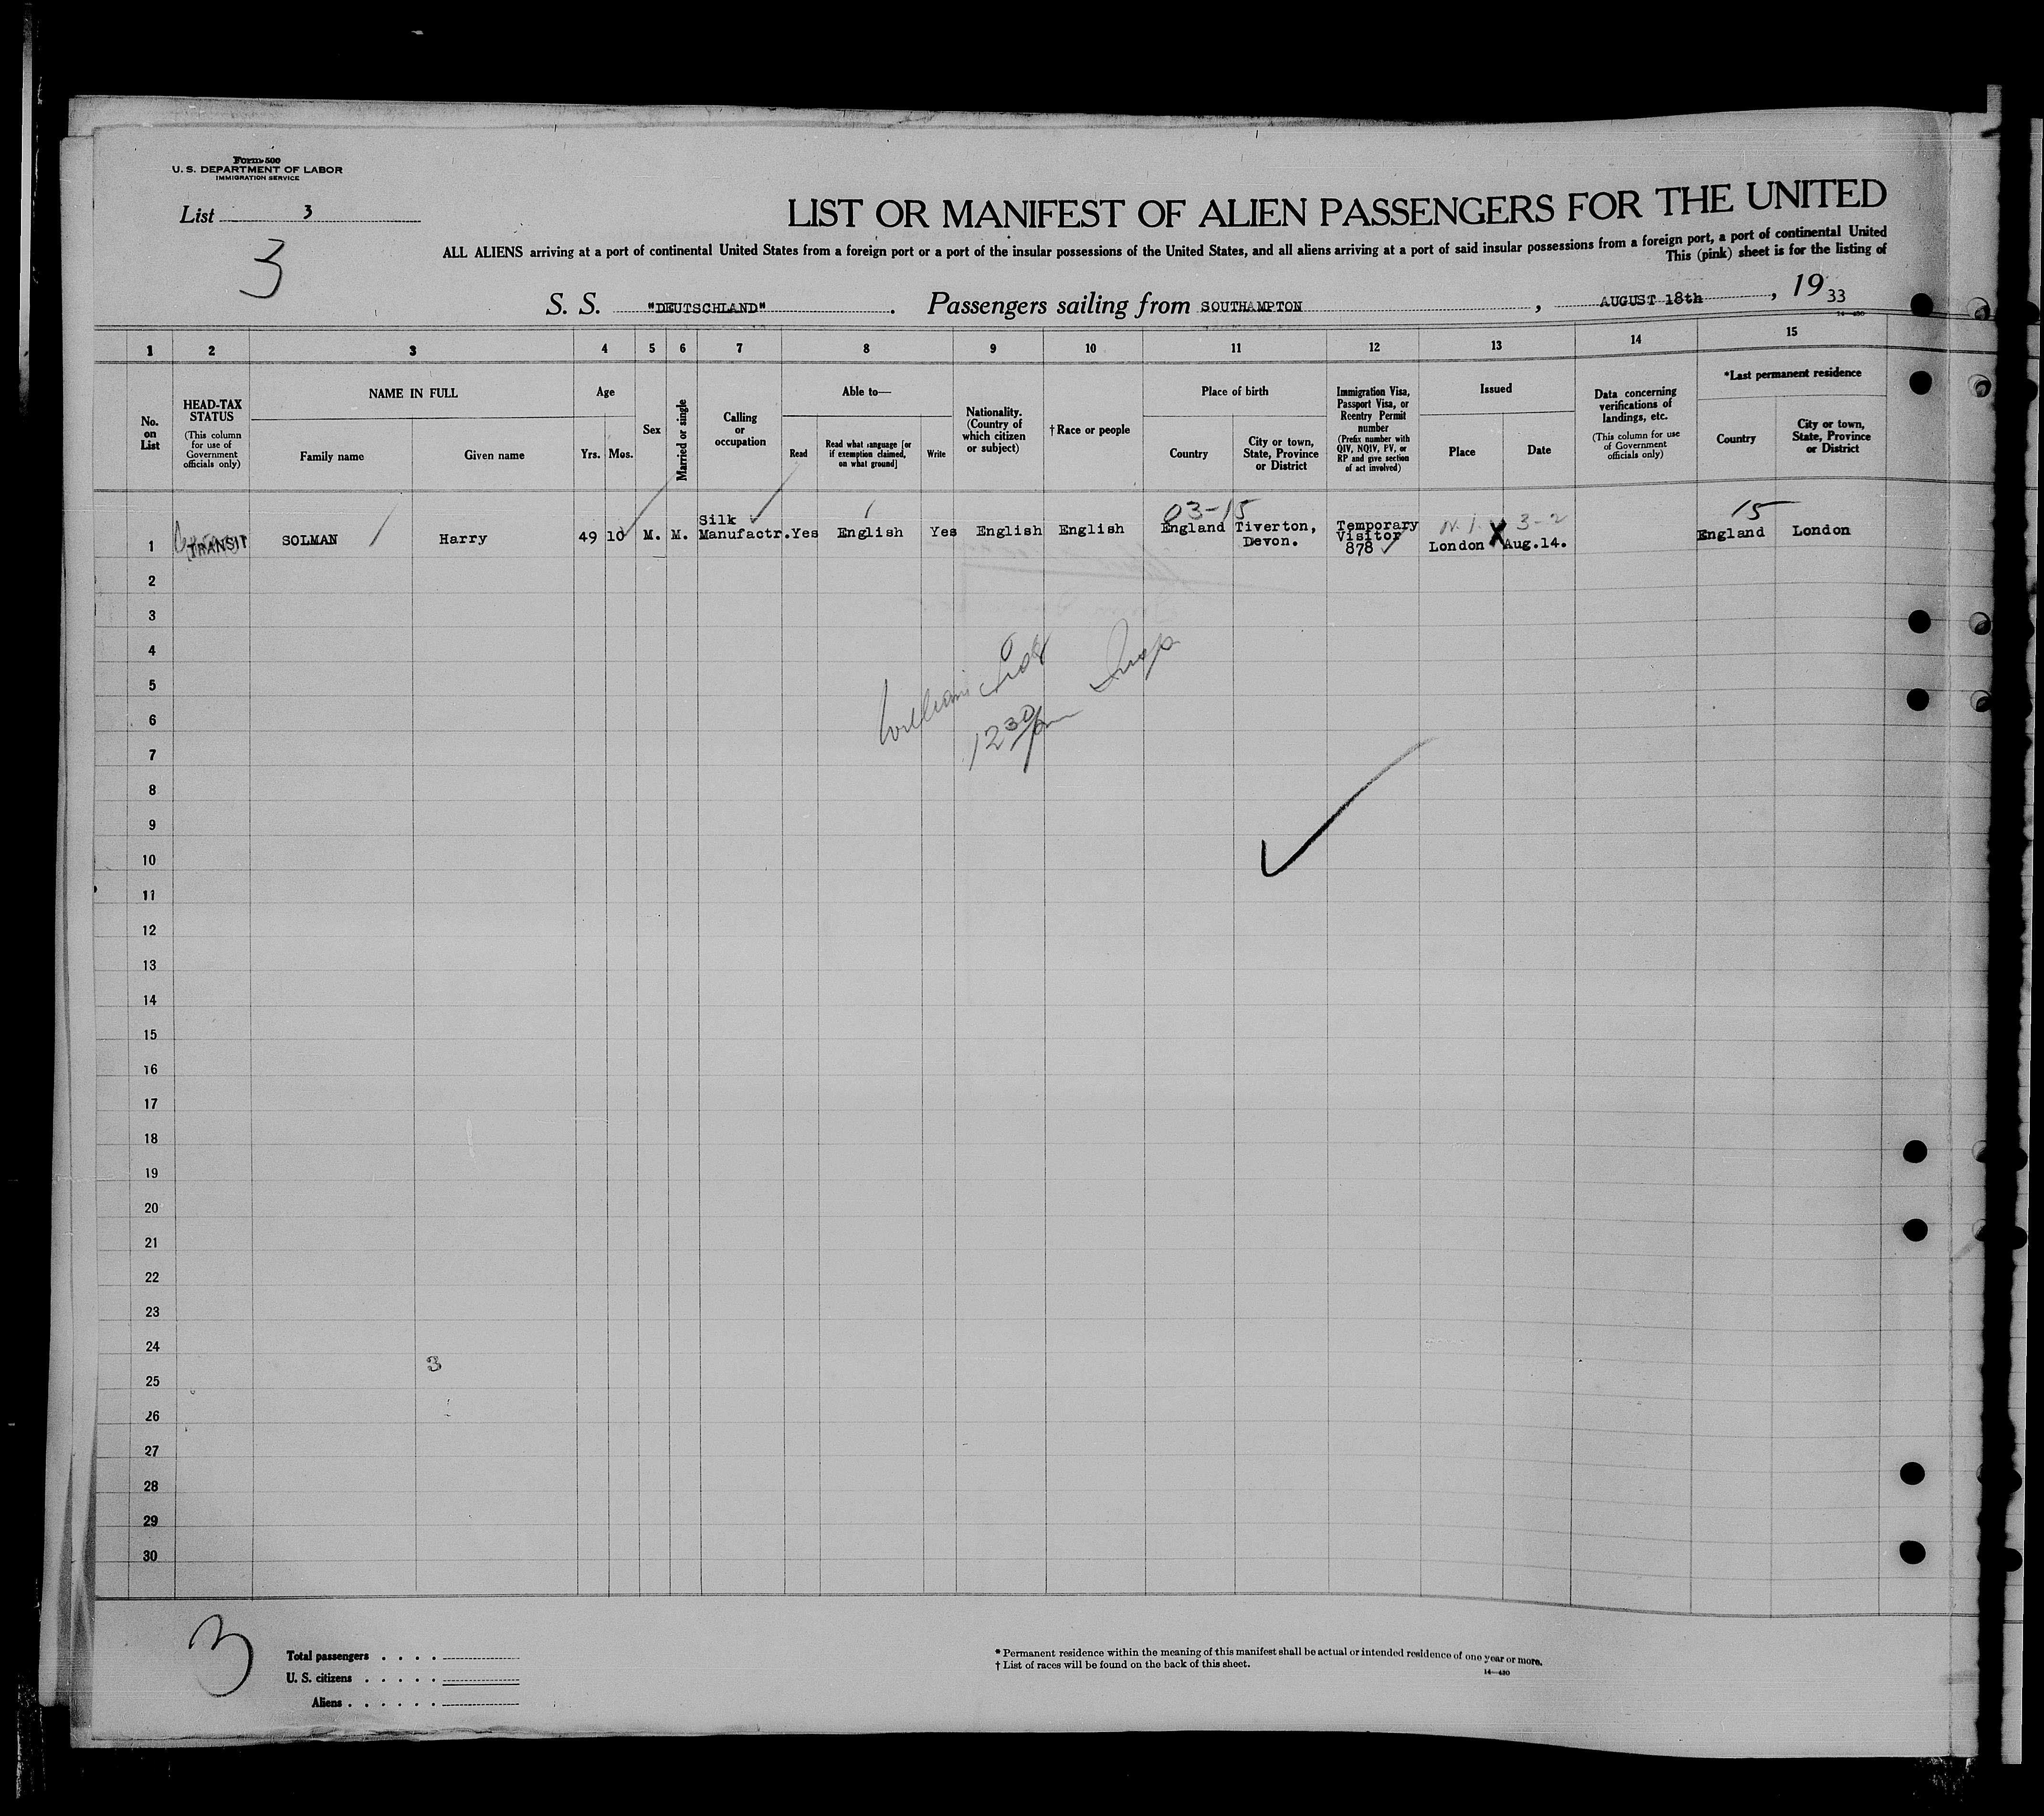 Form 500
U. S. DEPARTMENT OF LABOR
IMMIGRATION SERVICE
List 3
3
LIST OR MANIFEST OF ALIEN PASSENGERS FOR THE UNITED
ALL ALIENS arriving at a port of continental United States from a foreign port or a port of the insular possessions of the United States, and all aliens arriving at a port of said insular possessions from a foreign port, a port of continental United
This (pink) sheet is for the listing of
S. S. "DEUTSCHLAND" . Passengers sailing from SOUTHAMPTON , AUGUST 18th , 19 33
14—430
1 2 3 4 5 6 7 8 9 10 11 12 13 14 15
No. on List
HEAD-TAX STATUS
(This column for use of Government officials only)
NAME IN FULL
Family name
Given name
Age
Yrs. Mos.
Sex
Married or single
Calling or occupation
Able to—
Read
Read what language [or if exemption claimed, on what ground]
Write
Nationality. (Country of which citizen or subject)
†Race or people
Place of birth
Country
City or town, State, Province or District
Immigration Visa, Passport Visa, or Reentry Permit number
(Prefix number with QIV, NQIV, PV, or RP and give section of act involved)
Issued
Place
Date
Data concerning verifications of landings, etc.
(This column for use of Government officials only)
*Last permanent residence
Country
City or town, State, Province or District
03-15
3-2
15
1 TRANSIT SOLMAN Harry 49 10 M. M. Silk Manufactr. Yes English Yes English English England Tiverton, Devon. Temporary Visitor 878 London X Aug.14. England London
2
3
4
5
6
7
8
9
10
11
12
13
14
15
16
17
18
19
20
21
22
23
24
25
26
27
28
29
30
William Insp
12 30 pm
3
3
Total passengers . . . .
U. S. citizens . . . . .
Aliens . . . . . .
* Permanent residence within the meaning of this manifest shall be actual or intended residence of one year or more.
† List of races will be found on the back of this sheet.
14—430